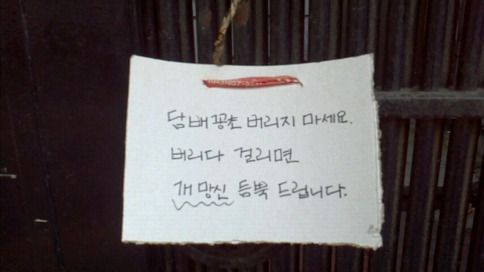 담배꽁초 버리지 마세요.
버리다 걸리면
개망신 듬뿍 드립니다.